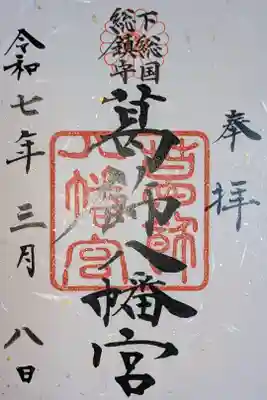 奉拝
下総国
総鎮守
葛飾八幡宮
葛飾
八幡宮
令和七年三月八日